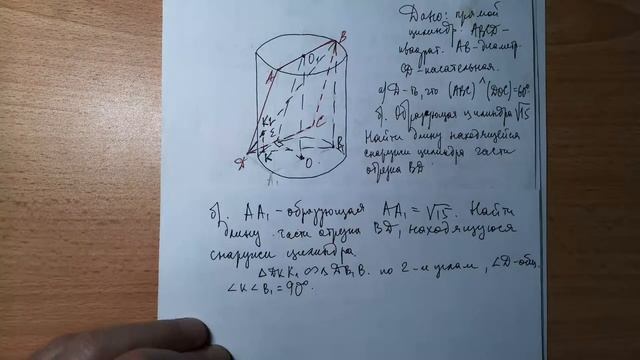 Дано: прямой
цилиндр. ABCD-
квадрат. AB-диаметр
CD-касательная.
а) Д-ть, что (ABC)^(DOC)=60°
б). Образующая цилиндра √15
Найти длину находящейся
снаружи цилиндра части
отрезка BD.
B
A
O₁
K₁
C
E
K
D
B₁
O
A₁
б). AA₁-образующая AA₁=√15. Найти
длину части отрезка BD, находящуюся
снаружи цилиндра.
△DKK₁ ∾ △DB₁B. по 2-м углам, ∠D-общ.
∠K ∠B₁=90°.